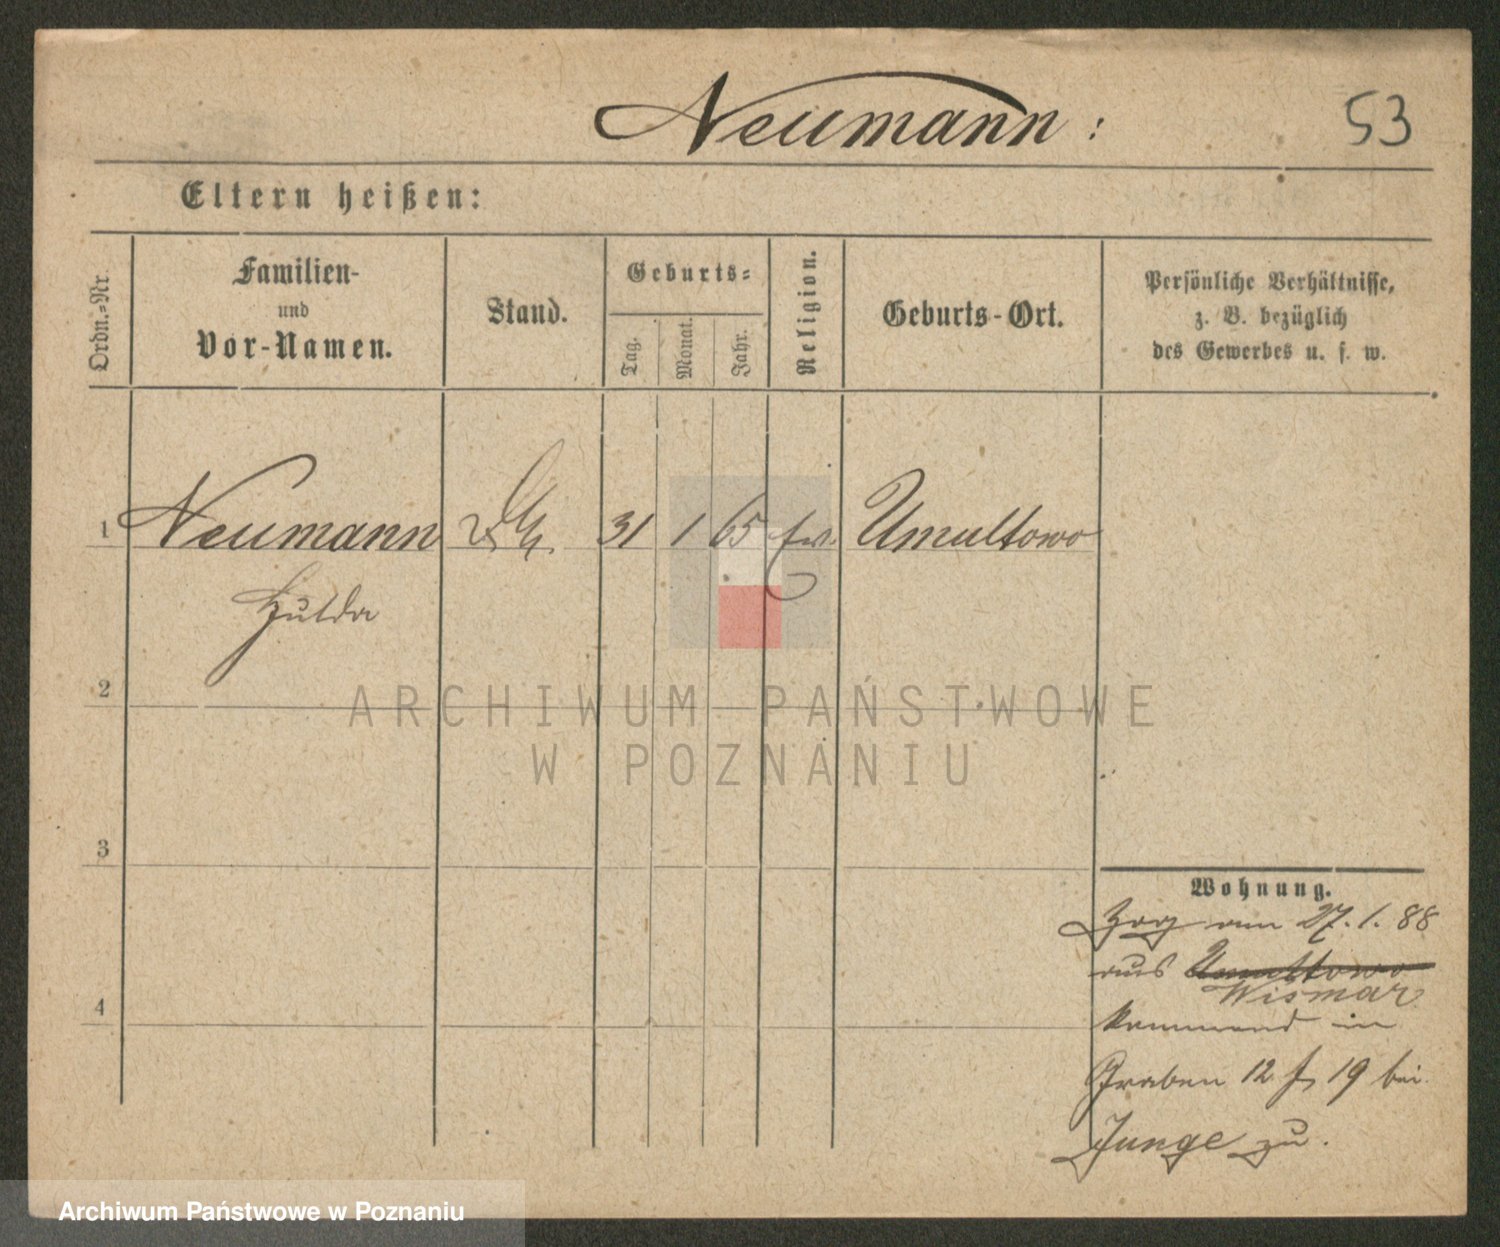 Neumann :
53
Eltern heißen:
Ordn.-Nr.
Familien-
und
Vor-Namen.
Stand.
Geburts-
Tag.
Monat.
Jahr.
Religion.
Geburts-Ort.
Persönliche Verhältnisse,
z. B. bezüglich
des Gewerbes u. s. w.
1 Neumann 31 1 65 ev. Umultowo
Hulda
2
ARCHIWUM PAŃSTWOWE
W POZNANIU
3
Wohnung.
Zog am 27.1.88
aus Umultowo
Wismar
4
kommend in
Graben 12 19 bei
Junge zu.
Archiwum Państwowe w Poznaniu